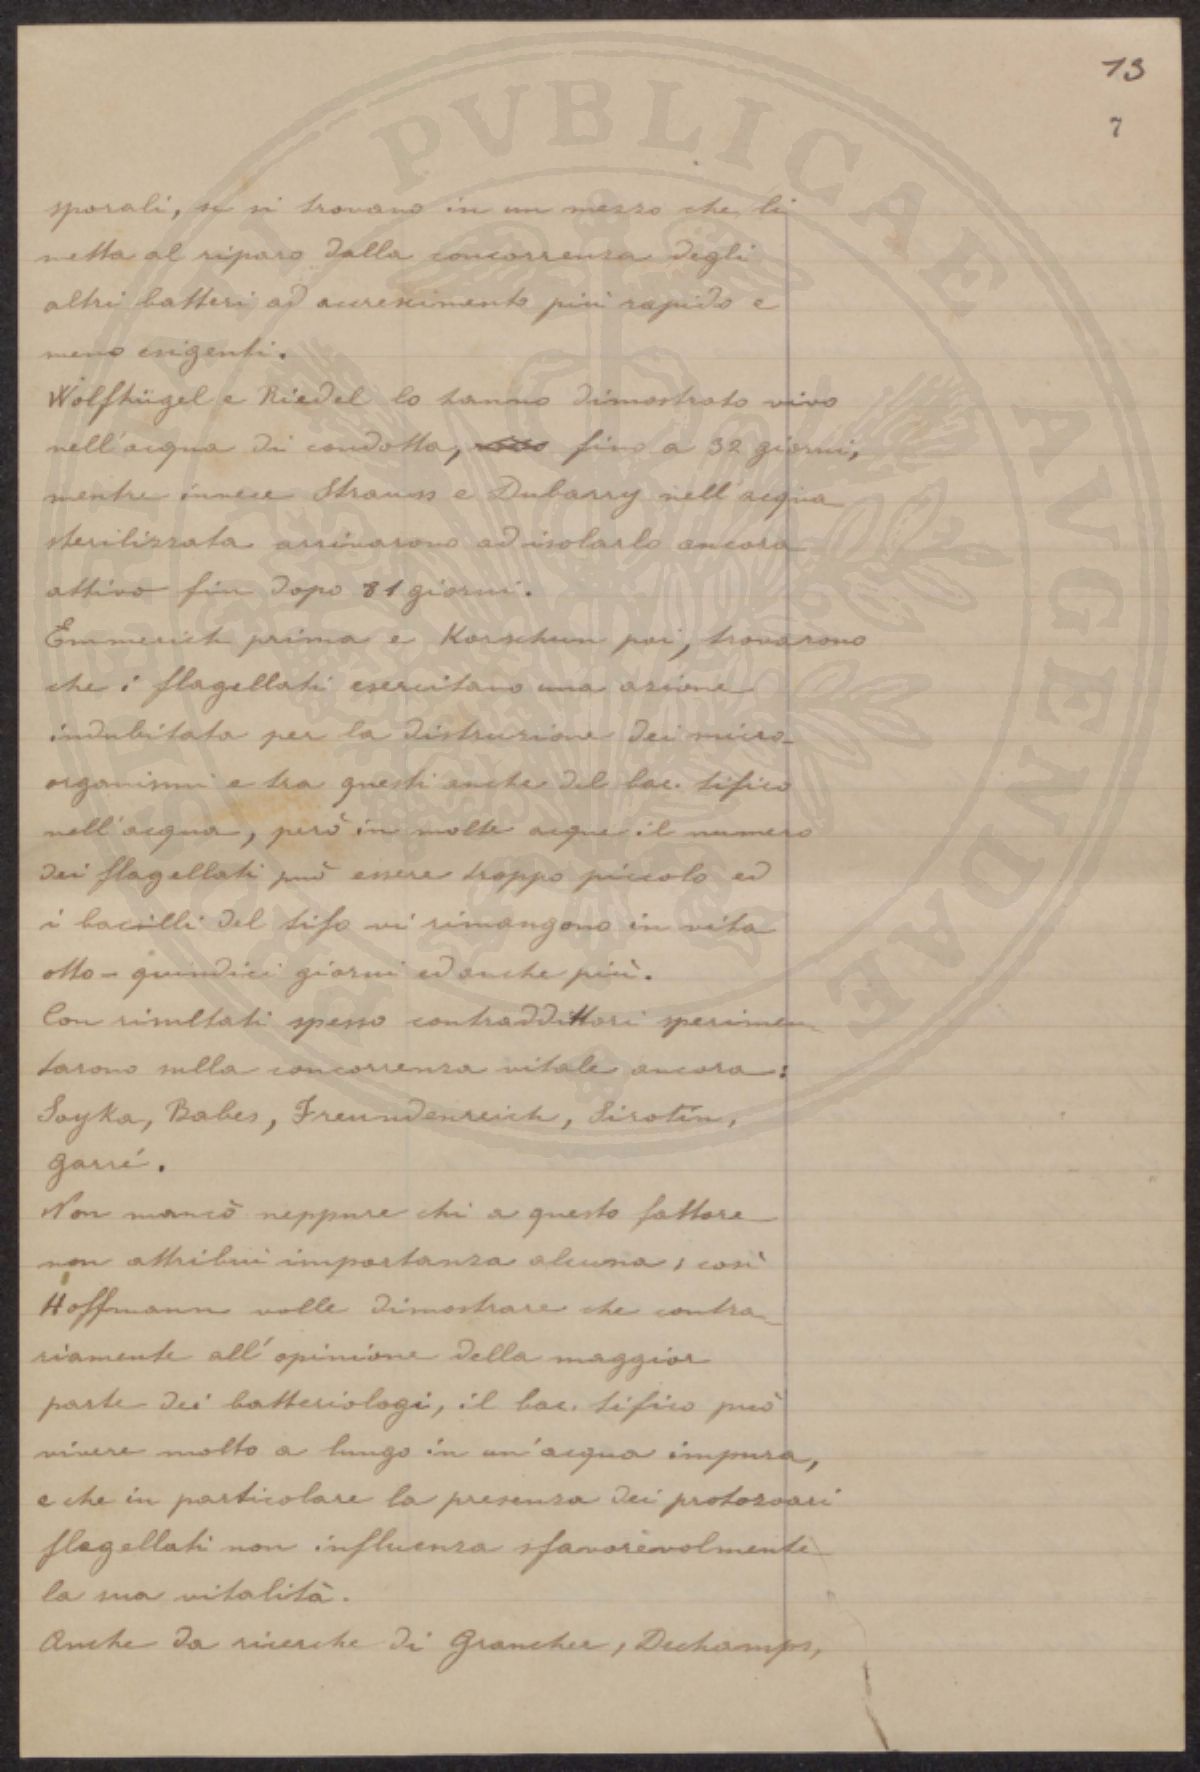 13
7
sporali, se si trovano in un mezzo che li
metta al riparo dalla concorrenza degli
altri batteri ad accrescimento più rapido e
meno esigenti.
Wolfhügel e Riedel lo hanno dimostrato vivo
nell'acqua di condotta, fino a 32 giorni,
mentre invece Strauss e Dubarry nell'acqua
sterilizzata arrivarono ad isolarlo ancora
attivo fin dopo 81 giorni.
Emmerich prima e Korschun poi, trovarono
che i flagellati esercitano una azione
indubitata per la distruzione dei micro-
organismi e tra questi anche del bac. tifico
nell'acqua, però in molte acque il numero
dei flagellati può essere troppo piccolo ed
i bacilli del tifo vi rimangono in vita
otto-quindici giorni ed anche più.
Con risultati spesso contraddittori sperimen-
tarono sulla concorrenza vitale ancora:
Soyka, Babes, Freundenreich, Sirotin,
Garré.
Non mancò neppure chi a questo fattore
non attribuì importanza alcuna; così
Hoffmann volle dimostrare che contra-
riamente all'opinione della maggior
parte dei batteriologi, il bac. tifico può
vivere molto a lungo in un'acqua impura,
e che in particolare la presenza dei protozoari
flagellati non influenza sfavorevolmente
la sua vitalità.
Anche da ricerche di Grancher, Dechamps,
PVBLICAE AVGENDAE